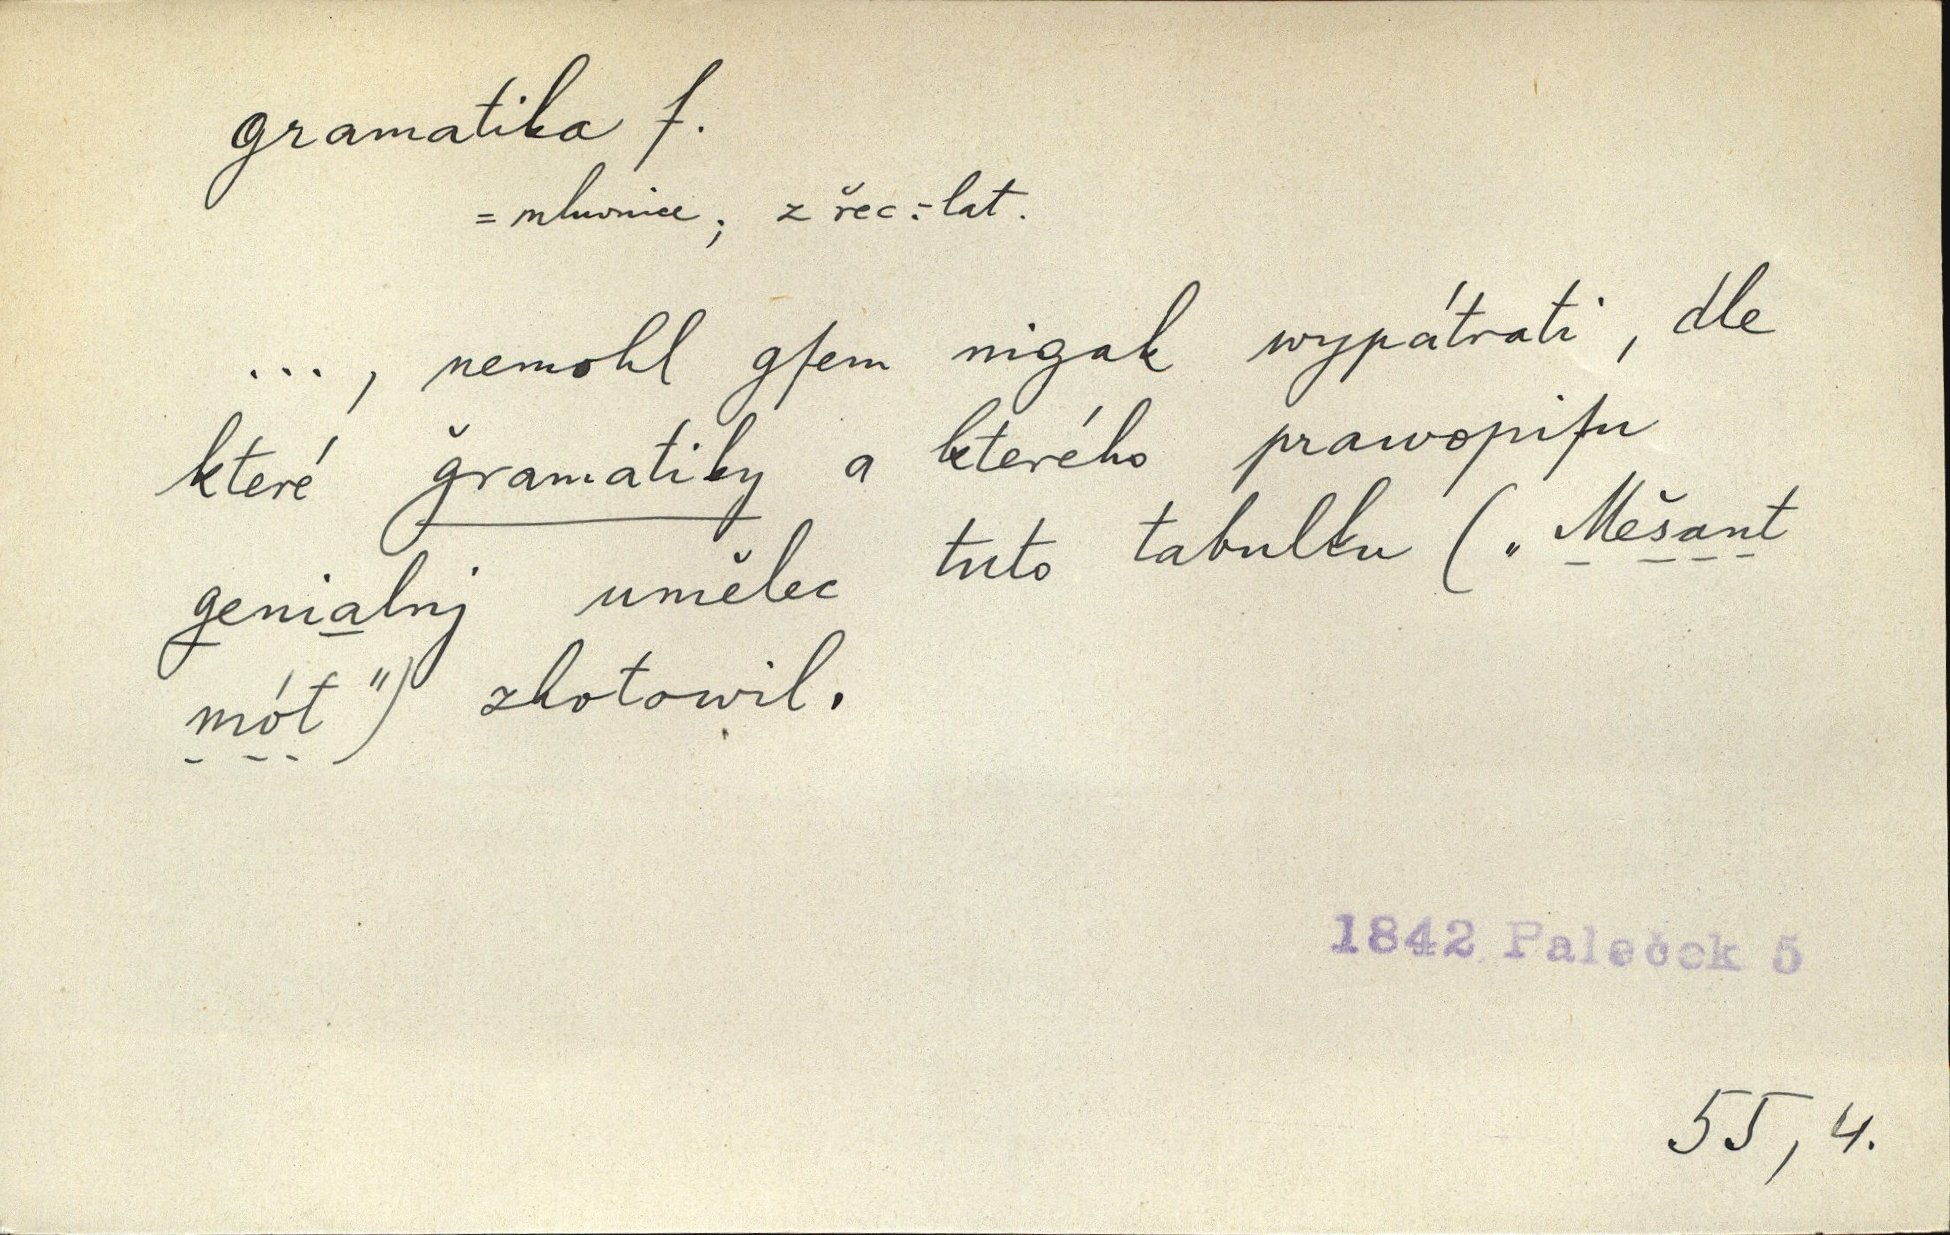 gramatika f.
= mluvnice; z řec.-lat.
..., nemohl gſem nigak wypátrati, dle
které ǧramatiky a kterého prawopiſu
genialnj umělec tuto tabulku („Mešant
mót") zhotowil.
1842 Paleček 5
55, 4.